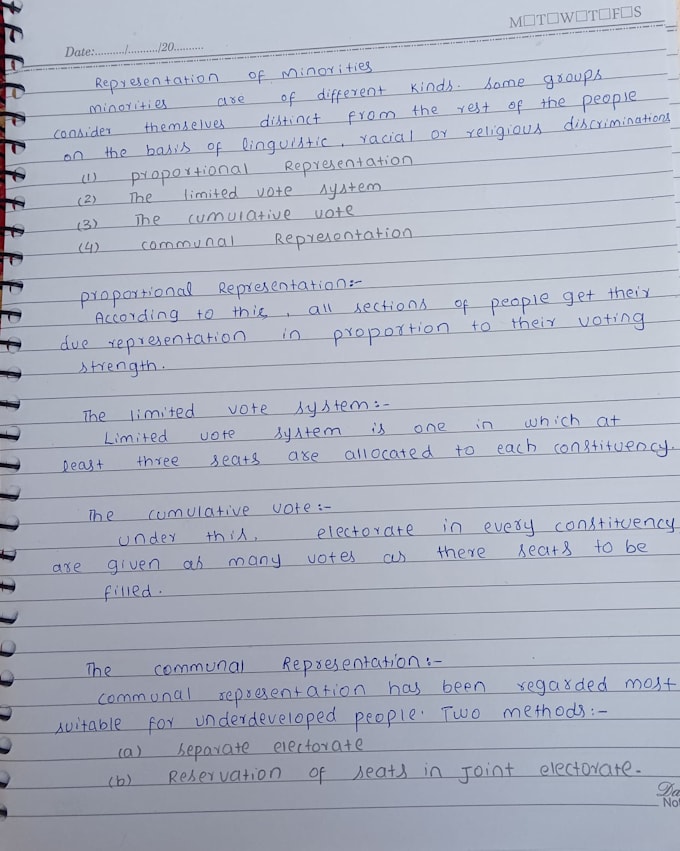 M□T□W□T□F□S
Date:........../........../20..........
Representation of minorities
minorities are of different kinds. Some groups
consider themselves distinct from the rest of the people
on the basis of linguistic, racial or religious discriminations
(1) proportional Representation
(2) The limited vote system
(3) The cumulative vote
(4) communal Representation
proportional Representation:-
According to this, all sections of people get their
due representation in proportion to their voting
strength.
The limited vote system:-
Limited vote system is one in which at
least three seats are allocated to each constituency.
The cumulative vote:-
under this, electorate in every constituency
are given as many votes as there seats to be
filled.
The communal Representation:-
communal representation has been regarded most
suitable for underdeveloped people. Two methods:-
(a) separate electorate
(b) Reservation of seats in joint electorate.
Da
No